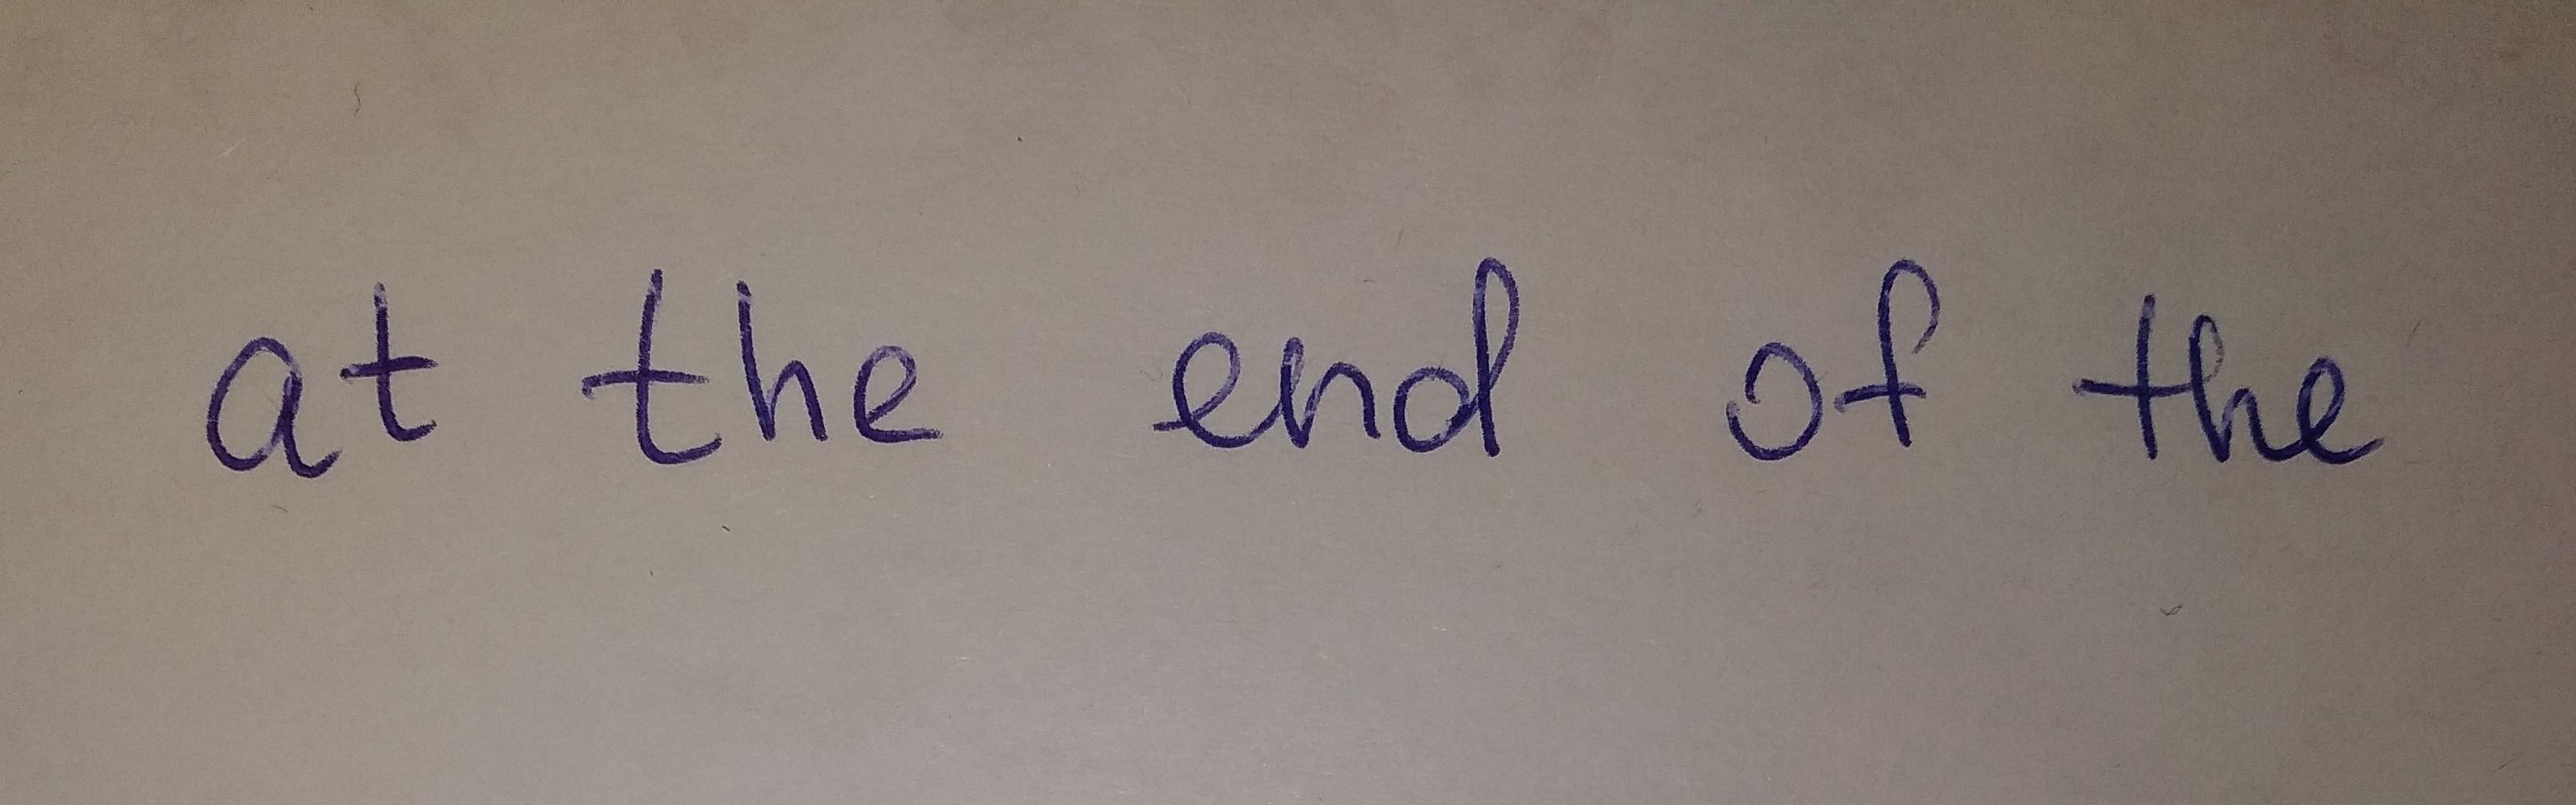 at the end of the